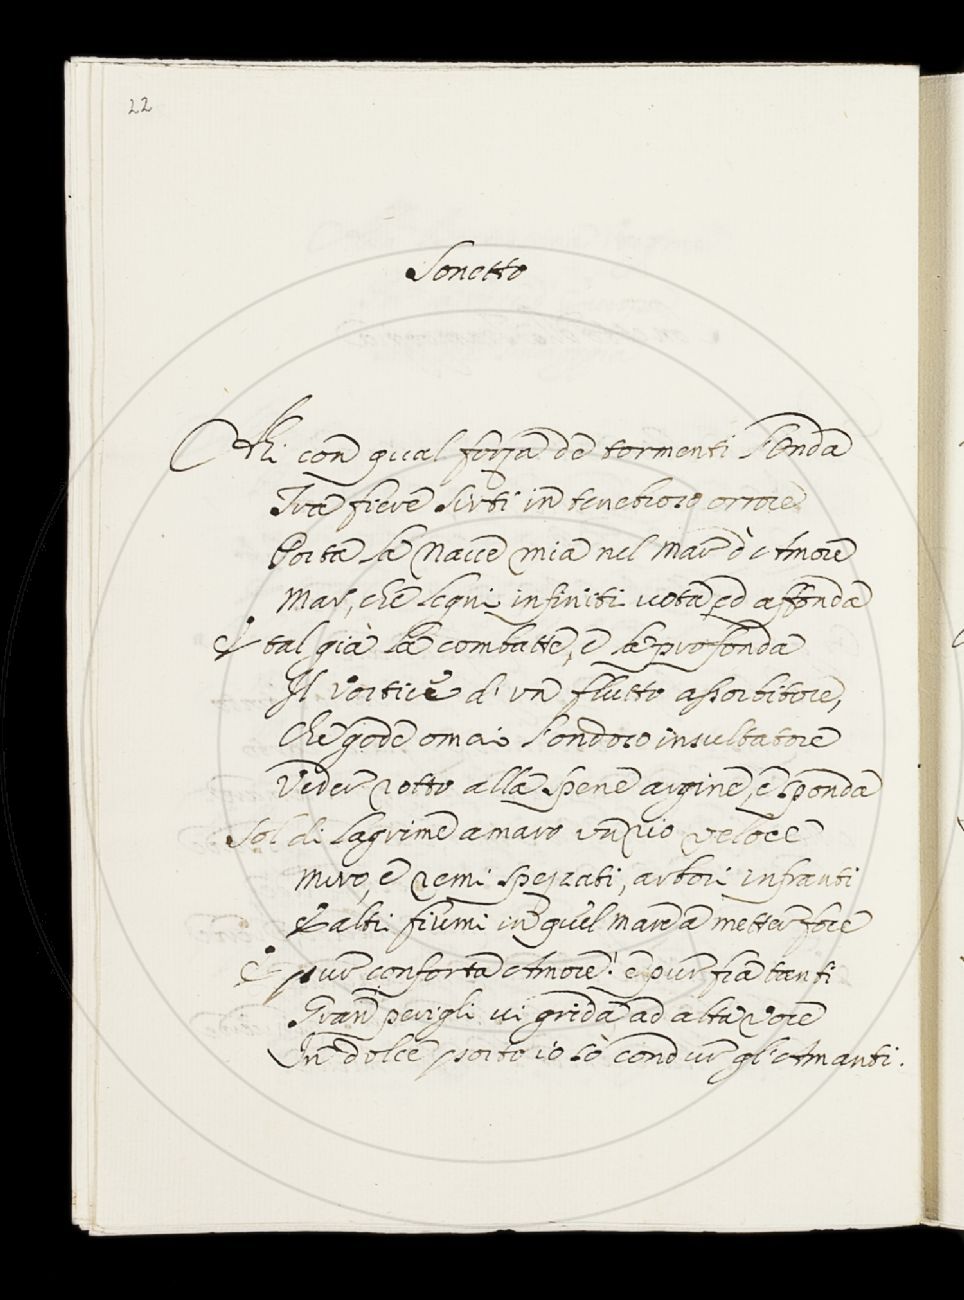 22
Sonetto
Ahi con qual forza de tormenti l'Onda
Tra fiere Sirti in tenebroso orrore
Porta la Navce mia nel Mar d'Amore
Mar, che legni infiniti vota, ed affonda
E tal già la combatte, e la profonda
Il Vortice di vn flutto assorbitore,
Che gode omai l'ondoso insultatore
Veder rotto alla spene argine, e sponda
Sol di lagrime amaro vn rio veloce
Miro, e remi spezzati, arbori infranti
E altri fiumi in quel Mare a metter foce
E pur conforta Amore! e pur fra tanti
Gran perigli vi grida ad alta voce
In dolce porto io sò condur gl'Amanti.